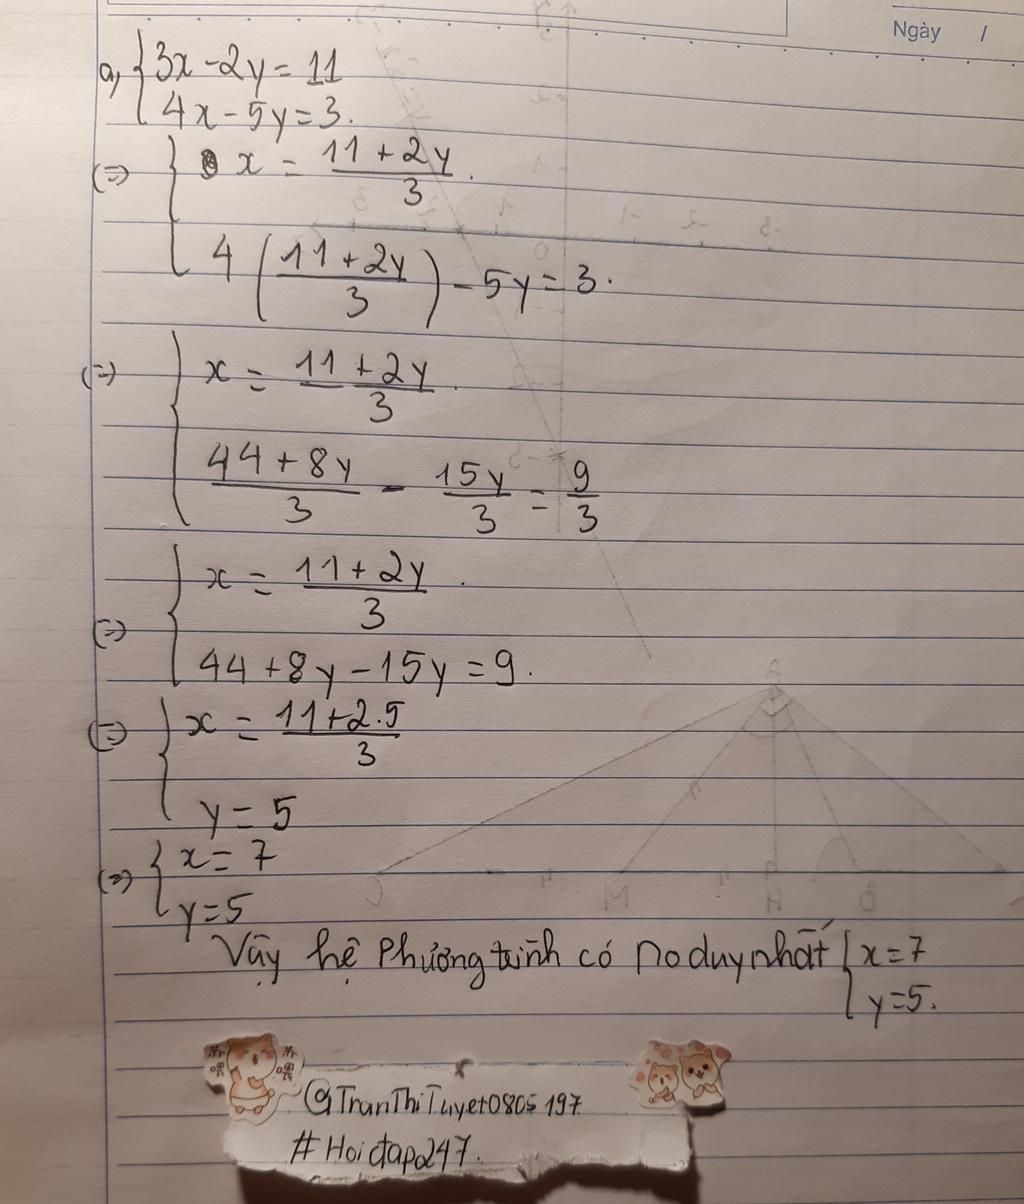 Ngày /
a, { 3x - 2y = 11
4x - 5y = 3.
(=) { x = (11 + 2y)/3.
4 ((11 + 2y)/3) - 5y = 3.
(=) { x = (11 + 2y)/3.
(44 + 8y)/3 - 15y/3 = 9/3
(=) { x = (11 + 2y)/3.
44 + 8y - 15y = 9.
(=) { x = (11 + 2.5)/3
y = 5
(=) { x = 7
y = 5
Vậy hệ Phương trình có no duy nhất { x = 7
y = 5.
@TranThiTuyet0805197
#Hoidap247.